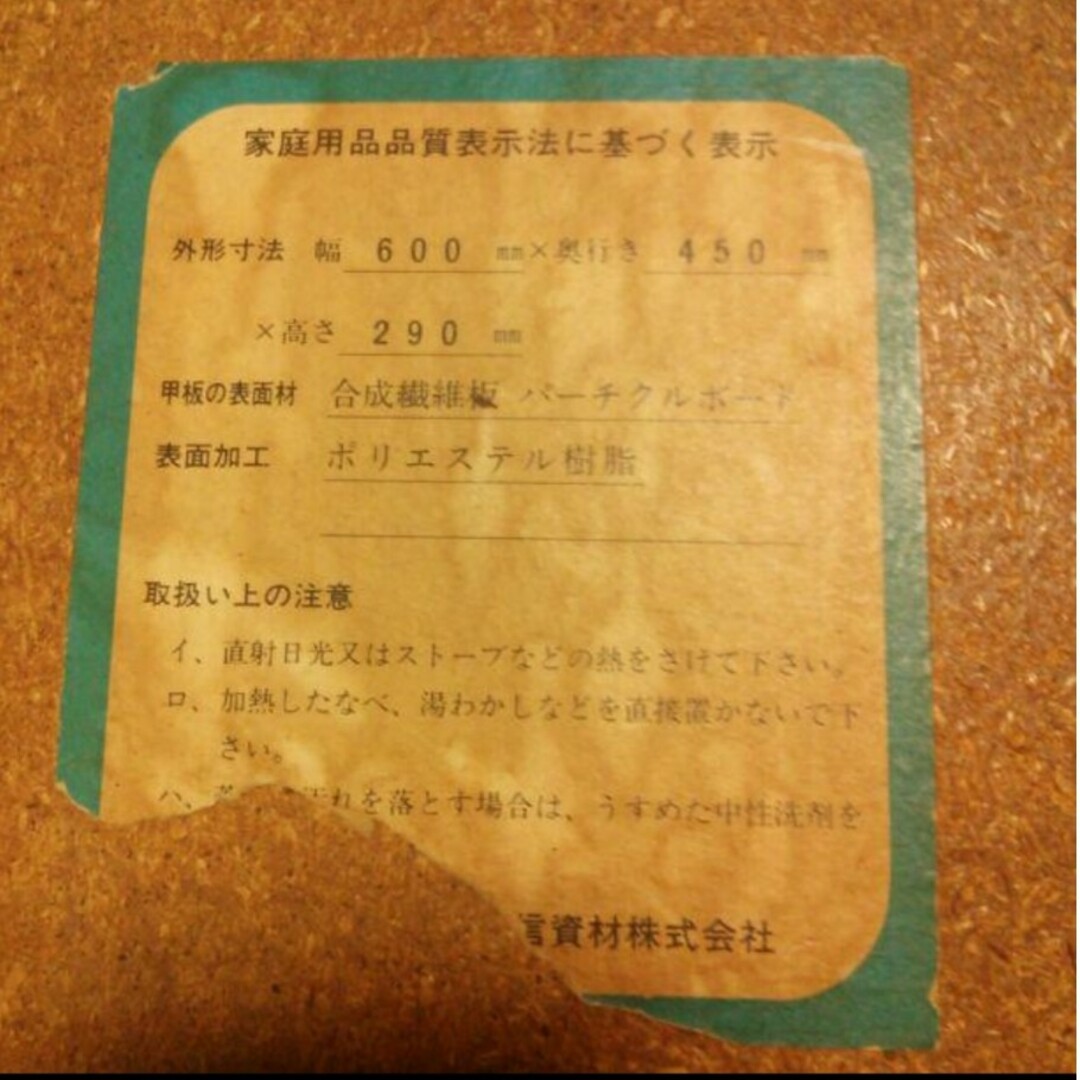 家庭用品品質表示法に基づく表示
外形寸法 幅 600 mm×奥行き 450 mm
×高さ 290 mm
甲板の表面材 合成繊維板 パーチクルボード
表面加工 ポリエステル樹脂
取扱い上の注意
イ、直射日光又はストーブなどの熱をさけて下さい。
ロ、加熱したなべ、湯わかしなどを直接置かないで下
さい。
ハ、汚れを落とす場合は、うすめた中性洗剤を
信資材株式会社